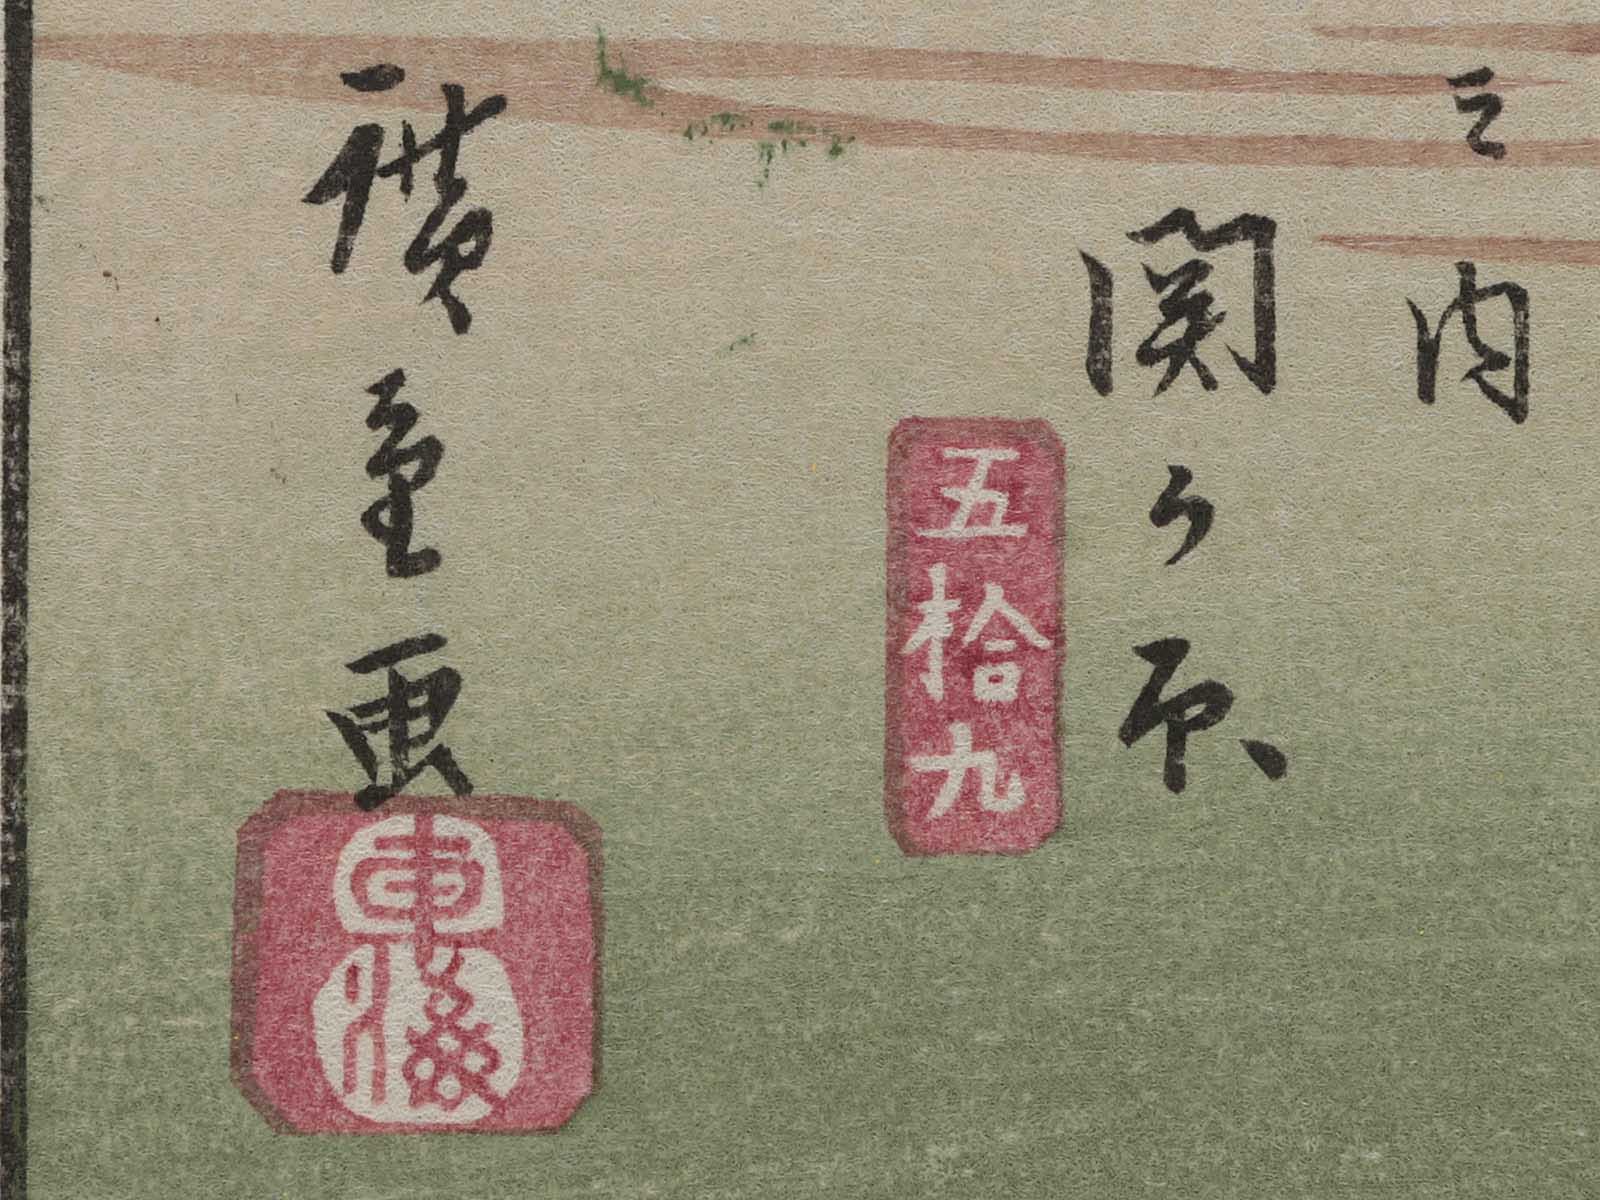 之内
関ケ原
五拾九
廣重画